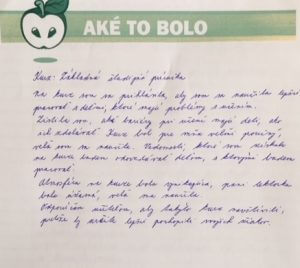 AKÉ TO BOLO
Kurz: Základná
Na kurz som sa prihlásila, aby som sa naučila lepšie
pracovať s deťmi, ktoré majú problémy s učením.
Zistila som, aké bariéry pri učení majú deti, ako
ich zdolávať. Kurz bol pre mňa veľmi poučný,
veľa som sa naučila. Vedomosti, ktoré som získala
na kurze budem odovzdávať deťom, s ktorými budem
pracovať.
Atmosféra na kurze bola, pani lektorka
bola úžasná, veľa ma naučila.
Odporúčam učiteľom, aby takýto kurz navštívili,
pretože by určite lepšie pochopili svojich žiakov.